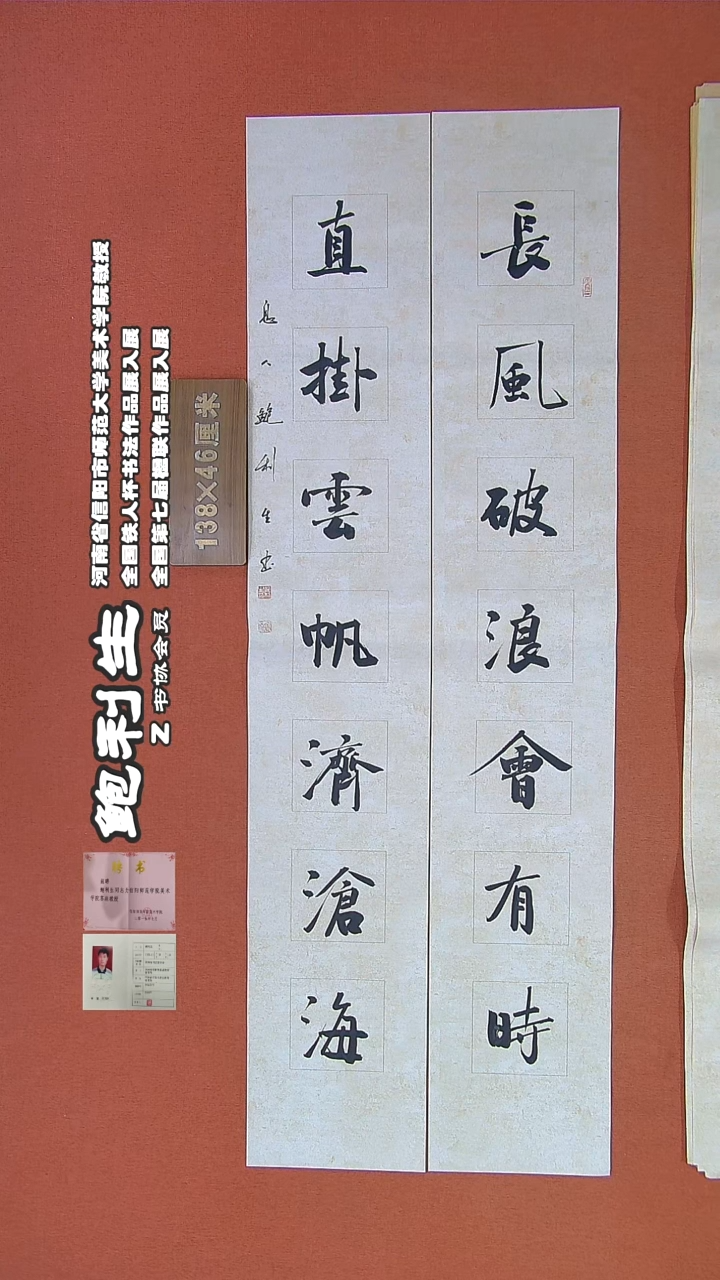 長風破浪會有時
直掛雲帆濟滄海
息人鮑利生書
138×46厘米
河南省信阳市师范大学美术学院教授
全国铁人杯书法作品展入展
全国第七届楹联作品展入展
鲍利生
Z书协会员
聘书